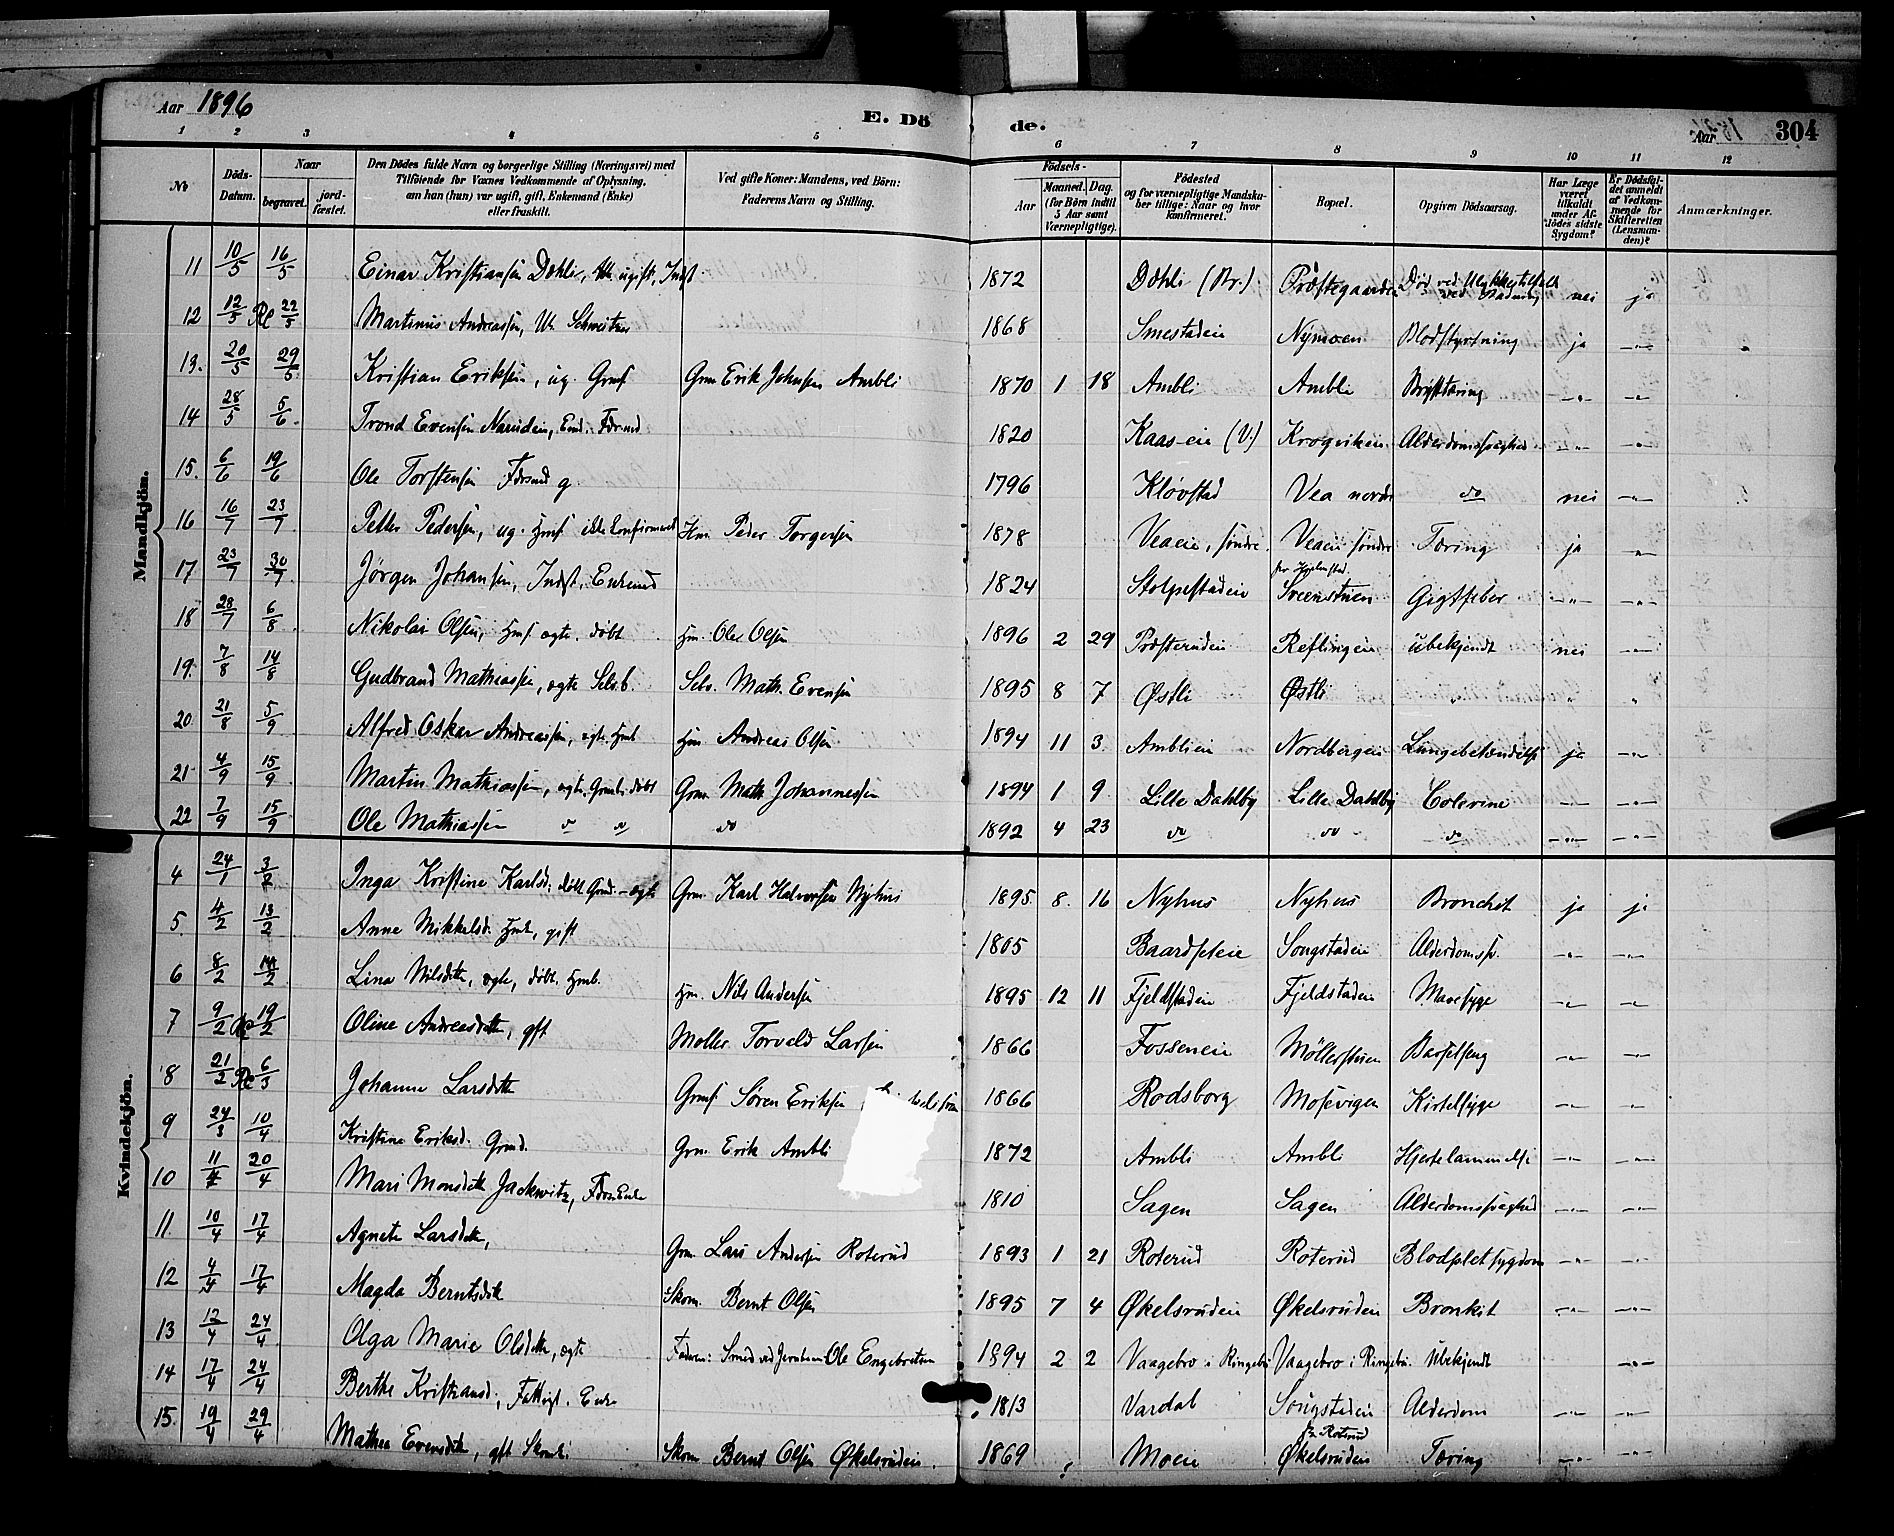 Aar 1896 E. Dö de. Aar 304
1 2 3 4 5 6 7 8 9 10 11 12
No Döds-Datum. Naar begravet. jordfæstet. Den Dödes fulde Navn og borgerlige Stilling (Næringsvei) med Tilföiende for Voxnes Vedkommende af Oplysning, om han (hun) var ugift, gift, Enkemand (Enke) eller fraskilt. Ved gifte Koner: Mandens, ved Börn: Faderens Navn og Stilling. Födsels- Aar Maaned. Dag. (for Börn indtil 5 Aar samt Værnepligtige). Födested og for værnepligtige Mandskaber tillige: Naar og hvor konfirmeret. Bopæl. Opgiven Dödsaarsag. Har Læge været tilkaldt under Aflödes sidste Sygdom? Er Dödsfaldet anmeldt af Vedkommende for Skifteretten (Lensmanden)? Anmærkninger.
Mandkjön.
11 10/5 16/5 Einar Kristiansen Dæhli, ugift, Indst. 1872 Dæhli (Br.) Præstegaarden Död ved Ulykkestilfælde ved nei ja
12 12/5 Re 22/5 Martinus Andreassen, Schweitzer 1868 Smestadeie Nymoen Blodstyrtning ja -"-
13. 20/5 29/5 Kristian Eriksen, ug. Grmf Grm Erik Johnsen Ambli 1870 1 18 Ambli Ambli Brysttæring -"- -"-
14 28/5 5/6 Trond Evensen Narudeie, Enk. Forsmd 1820 Kaas-eie (V.) Krogviken Alderdomssvaghed -"- -"-
15. 6/6 19/6 Ole Torstensen Forsmd g. 1796 Kløvstad Vea nordr do nei -"-
16 16/7 23/7 Petter Pedersen, ug. Hmf ikke konfirmeret Hm. Peder Torgersen 1878 Veaeie, søndre. Veaeie søndre Tæring ja -"-
17 23/7 30/7 Jørgen Johansen, Indst. Enkemd 1824 Stolpestadeie Sveenstuen Gigtfeber -"- -"-
18 28/7 6/8 Nikolai Olsen, Hmf. ægte. døbt Hm. Ole Olsen 1896 2 29 Præsterudeie Reflingeie ubekjendt nei -"-
19. 7/8 14/8 Gudbrand Mathiassen, ægte Selvb. Selv. Math. Evensen 1895 8 7 Østli Østli " " "
20. 21/8 5/9 Alfred Oskar Andreassen, ægte Hmb Hm Andreas Olsen 1894 11 3 Amblieie Nordbergeie Lungebetændelse ja -"-
21 4/9 15/9 Martin Mathiassen, ægte. Grmb. døbt Grm. Math Johannessen 1894 1 9 Lille Dahlby Lille Dahlby Colerine -"- -"-
22 7/9 15/9 Ole Mathiassen do do do 1892 4 23 do do do -"- -"-
Kvindekjön.
4 24/1 3/2 Inga Kristine Karlsd: døbt Grmd - ægte Grm. Karl Halvorsen Nyhus 1895. 8. 16 Nyhus Nyhus Bronchit ja ja
5. 4/2 13/2 Anne Mikkelsd. Hmk, gift 1805 Baardseteie Songstadeie Alderdomssv. -"- -"-
6 8/2 14/2 Lina Nilsdtr, ægte, døbt. Hmb. Hm. Nils Andersen 1895 12 11 Fjeldstadeie Fjeldstadeie Mavesyge -"- -"-
7 9/2 Re 19/2 Oline Andreasdtr, gft Møller Torvald Larsen 1866 Fosseneie Møllerstuen Barselseng -"- -"-
8 21/2 Re 6/3 Johanne Larsdtr Grmf Søren Eriksen 1866 Rodsborg Mosevigen Kirtelsyge -"- -"-
9 24/3 10/4 Kristine Eriksd. Grmd. Grm. Erik Ambli 1872 Ambli Ambli Hjertelammelse -"- -"-
10 11/4 20/4 Mari Monsdtr Jackwitz, ForsEnke 1810 Sagen Sagen Alderdomssvaghed -"- -"-
11. 10/4 17/4 Agnete Larsdtr, Grm. Lars Andersen Roterud 1893 1 21 Roterud Roterud Blodpletsygdom -"- -"-
12 4/4 17/4 Magda Berntsdtr Skom. Bernt Olsen 1895 7 4 Økelsrudeie Økelsrudeie Bronkit -"- -"-
13 12/4 24/4 Olga Marie Olsdtr, ægte Faderen: Smed ved Jernbanen Ole Engebretsen 1894 2 2 Vaagebro i Ringebu Vaagebro i Ringebu. Ubekjendt -"-
14 17/4 24/4 Berthe Kristiansd; Fattigl. Enke 1813 Vardal Songstadeie Alderdom -"- -"-
15. 19/4 29/4 Mathea Evensdtr, gft Skomk. Skom Bernt Olsen Økelsrudeie. 1869 Moeie fra Roterud Økelsrudeie Tæring -"- -"-